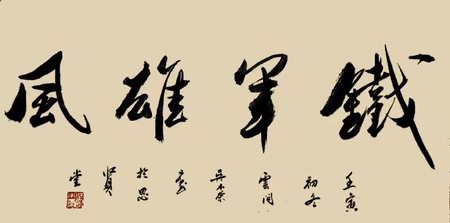 鐵軍雄風
壬寅
初冬
雲間
吳
書
於思
賢
堂